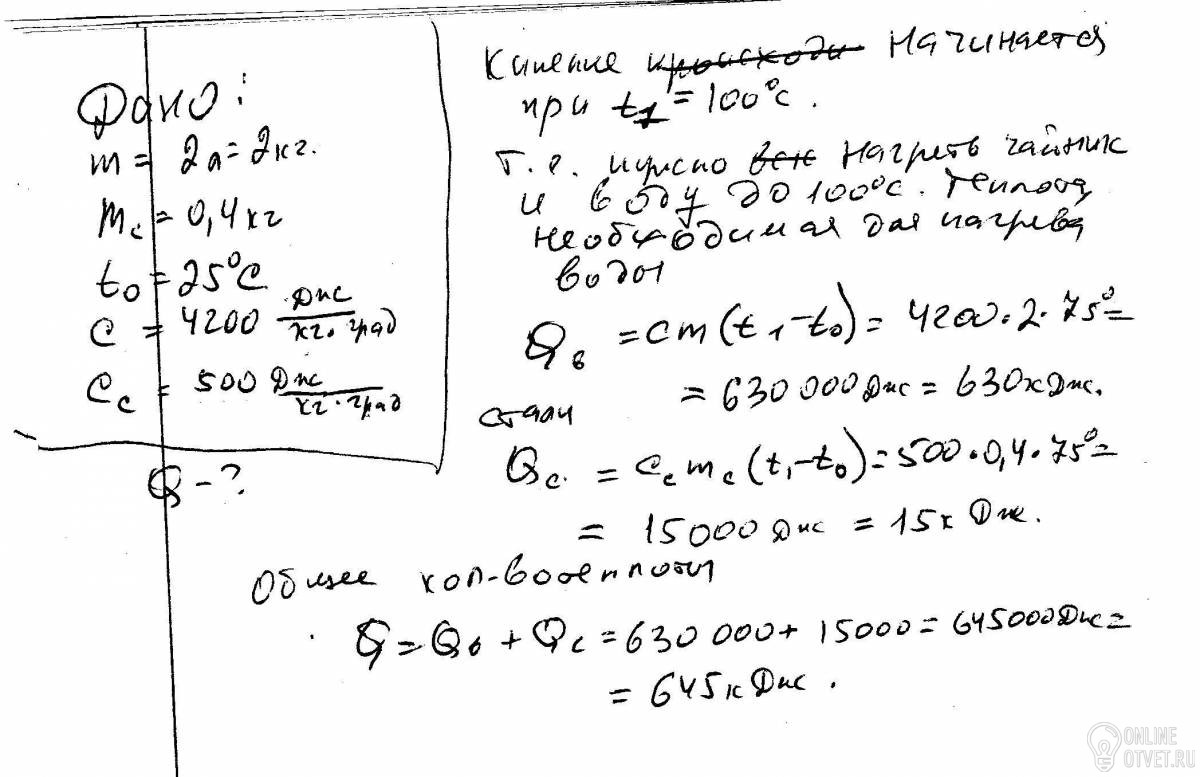 Дано:
m = 2л = 2кг.
mс = 0,4кг
t₀ = 25°С
С = 4200 Дж/кг·град
Сс = 500 Дж/кг·град
Q - ?
Кипение происходи начинается
при t₁ = 100°С.
Т.е. нужно всю нагреть чайник
и воду до 100°С. Теплота,
необходимая для нагрева
воды
Qв = cm(t₁-t₀) = 4200·2·75° =
= 630 000 Дж = 630кДж.
стали
Qс. = Cс mс (t₁-t₀) = 500·0,4·75° =
= 15000 Дж = 15к Дж.
Общее кол-во теплоты
Q = Qв + Qс = 630 000 + 15000 = 645000 Дж =
= 645к Дж.
ONLINE
OTVET.RU